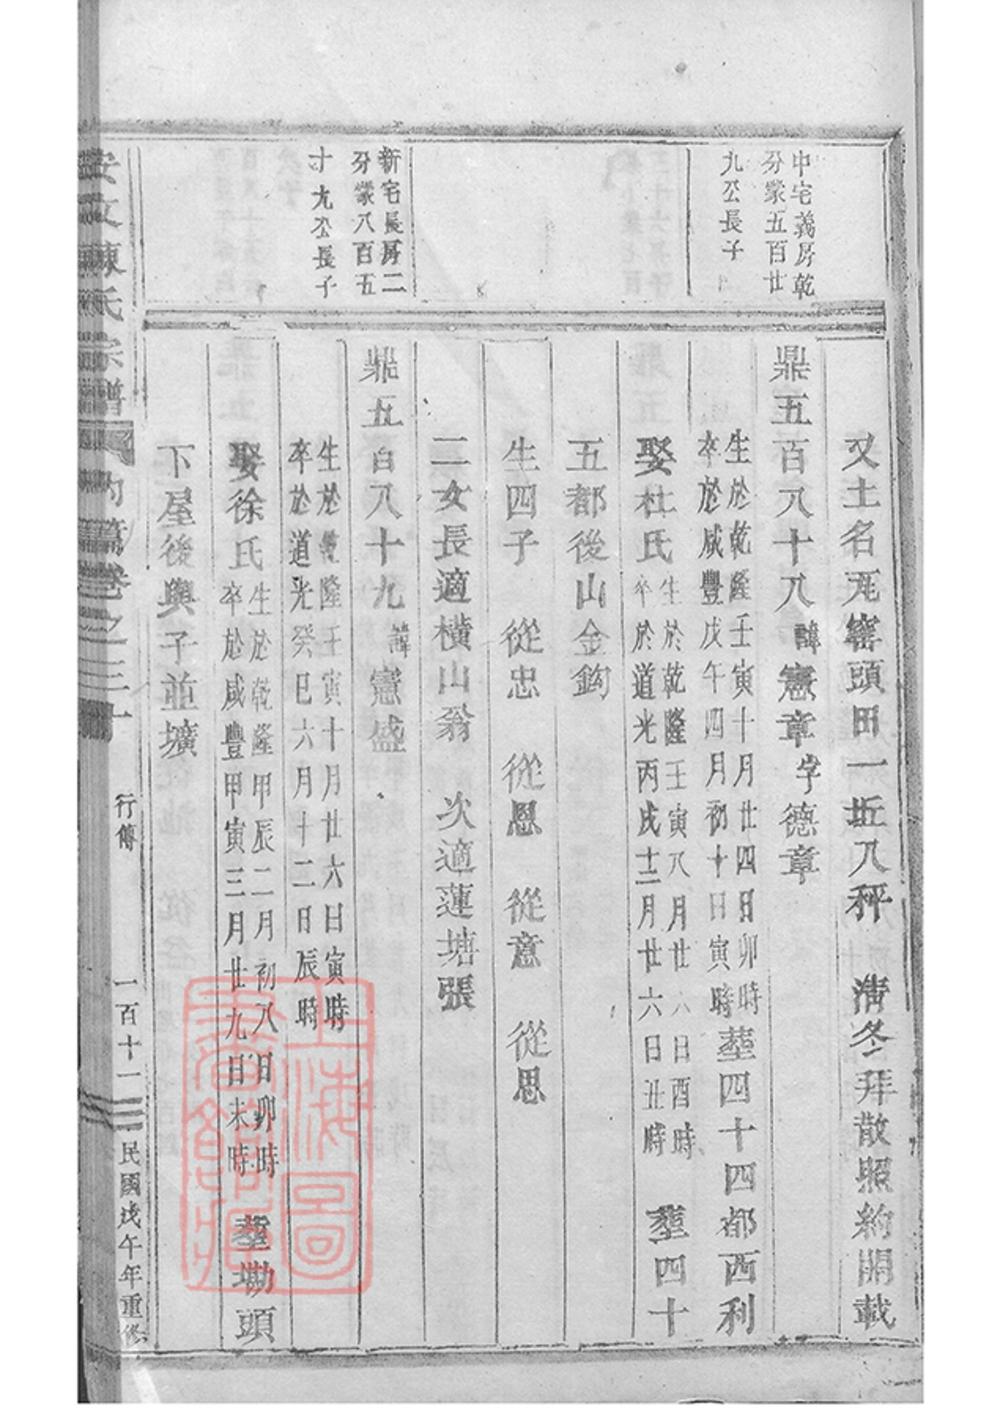 中宅義房乾
分蒙五百廿
九公長子
新宅長房二
分蒙八百五
十九公長子
又土名瓦窰頭田一坵八秤 淸冬拜散照約開載
鼎五百八十八 諱憲章字德章
生於乾隆壬寅十月廿四日卯時
卒於咸豐戊午四月初十日寅時 塟四十四都西利
娶杜氏 生於乾隆壬寅八月廿八日酉時
卒於道光丙戌十二月廿六日丑時 塟四十
五都後山金鈎
生四子 從忠 從恩 從意 從思
二女長適橫山翁 次適蓮塘張
鼎五百八十九 諱憲盛
生於乾隆壬寅十月廿六日寅時
卒於道光癸巳六月十二日辰時
娶徐氏 生於乾隆甲辰二月初八日卯時
卒於咸豐甲寅三月廿九日未時 塟塽頭
下屋後與子並壙
安文陳氏宗譜 內篇卷之三十 行傳 一百十一 民國戊午年重修
上海圖
書館藏